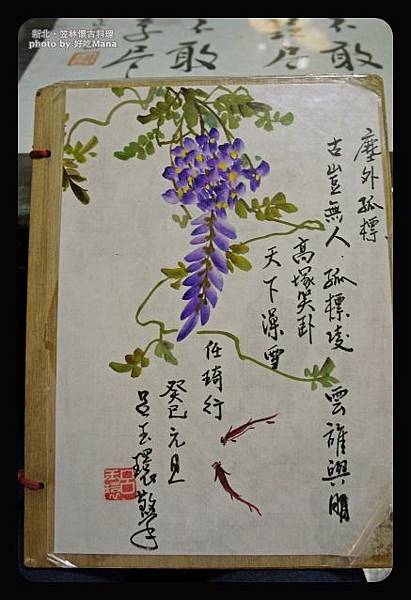 新北‧笠林懷古料理
photo by 好吃Mana
不敢
不敢
居
塵外孤標
古豈無人．孤標凌雲誰與朋
高塚笑卧
天下澡雪
任琦行
癸巳元旦
呂玉環敬手